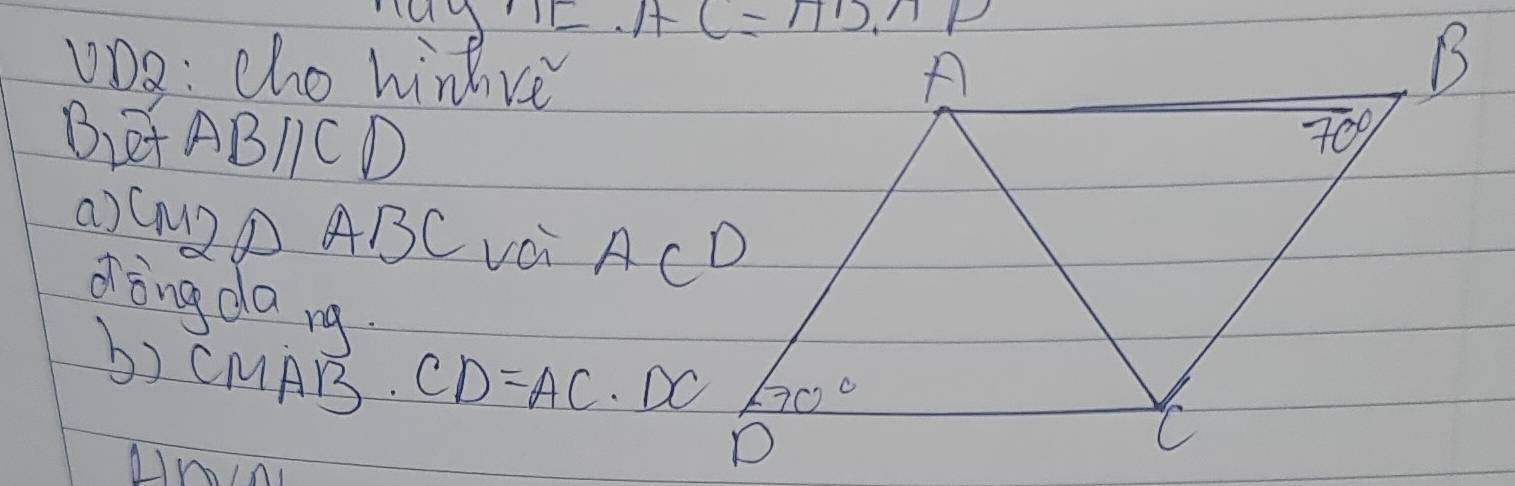 AC = AB.
VD2: Cho hình vẽ
Biết AB//CD
a) CM 2 Δ ABC vài ACD
đồng dạ
ng.
b) CM AB . CD = AC . DC
A
B
70°
70°
D
C